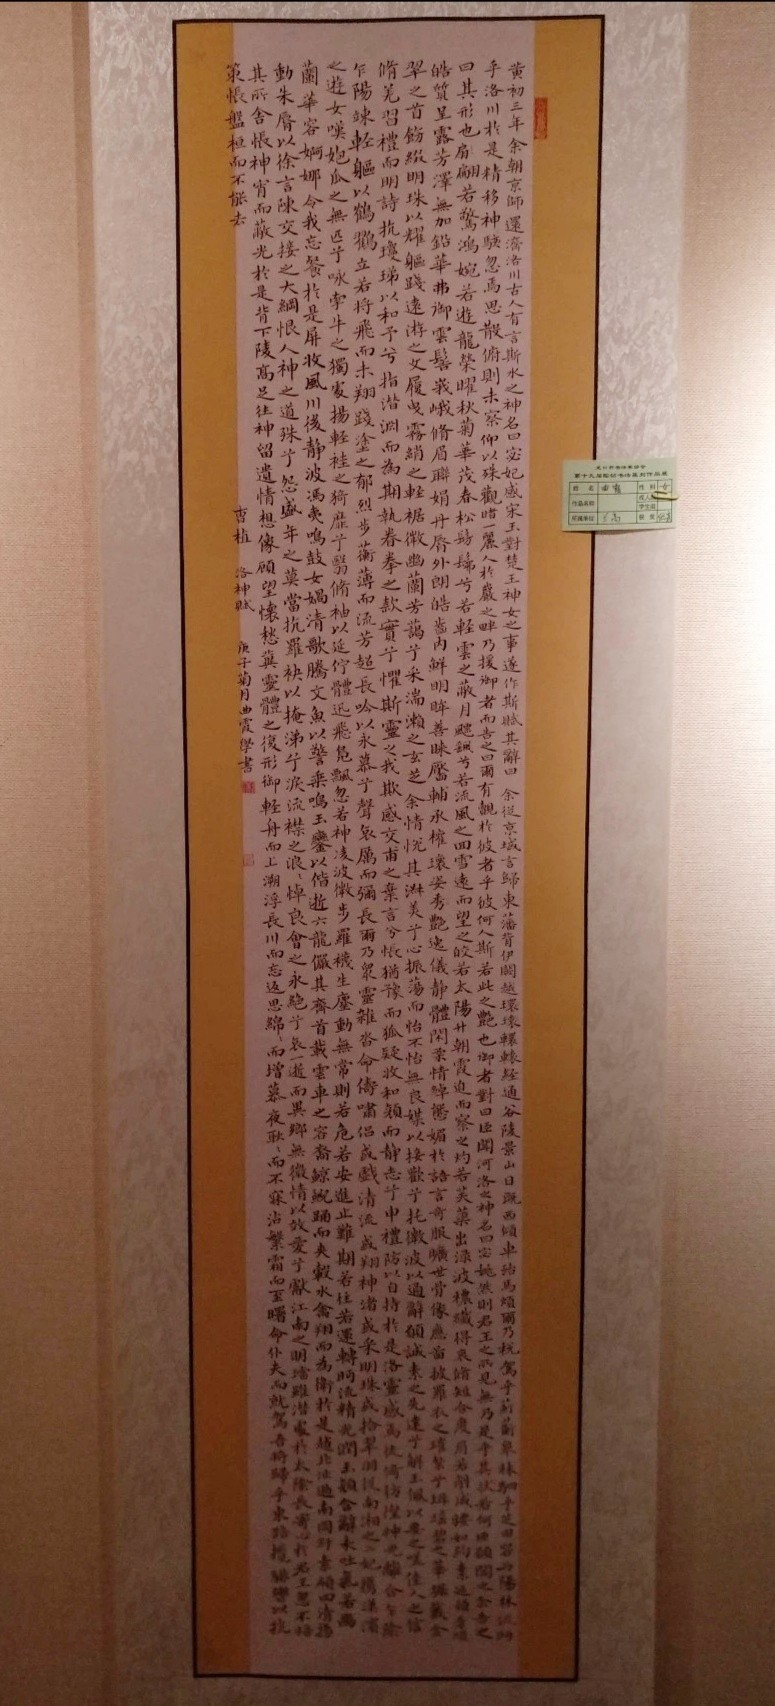 黄初三年余朝京師還濟洛川古人有言斯水之神名曰宓妃感宋玉對楚王神女之事遂作斯賦其辭曰 余從京域言歸東藩背伊闕越轘轅経通谷陵景山日既西傾車殆馬煩爾乃税駕乎蘅皋秣駟乎芝田容與陽林流眄
乎洛川於是精移神駭忽焉思散俯則未察仰以殊觀睹一麗人於巖之畔乃援御者而告之曰爾有覿於彼者乎彼何人斯若此之艷也御者對曰臣聞河洛之神名曰宓妃然則君王之所見無乃是乎其狀若何臣願聞之余告之
曰其形也翩若驚鴻婉若遊龍榮曜秋菊華茂春松髣髴兮若輕雲之蔽月飄颻兮若流風之回雪遠而望之皎若太陽升朝霞迫而察之灼若芙蕖出淥波穠纖得衷脩短合度肩若削成腰如約素延頸秀項
皓質呈露芳澤無加鉛華弗御雲髻峩峨脩眉聯娟丹唇外朗皓齒内鮮明眸善睞靨輔承權瓌姿艷逸儀静體閑柔情綽態媚於語言奇服曠世骨像應圖披羅衣之璀粲兮珥瑶碧之華琚戴金
翠之首飾綴明珠以耀軀踐遠游之文履曳霧綃之輕裾微幽蘭芳藹兮采湍瀨之玄芝余情悦其淑美兮心振蕩而不怡無良媒以接歡兮托微波以通辭願誠素之先達兮解玉佩以要之嗟佳人之信
脩羌習禮而明詩抗瓊珶以和予兮指潛淵而為期執眷眷之款實兮懼斯靈之我欺感交甫之棄言兮悵猶豫而狐疑收和顏而静志兮申禮防以自持於是洛靈感焉徙倚彷徨神光離合乍陰
乍陽竦輕軀以鶴立若将飛而未翔踐塗之郁烈步蘅薄而流芳超長吟以永慕兮聲哀厲而彌長爾乃衆靈雜沓命儔嘯侣或戲清流或翔神渚或采明珠或拾翠羽從南湘之二妃攜漢濱
之遊女嘆匏瓜之無匹兮咏牽牛之獨處揚輕袿之猗靡兮翳脩袖以延佇體迅飛鳧飄忽若神凌波微步羅襪生塵動無常則若危若安進止難期若往若還轉眄流精光潤玉顏含辭未吐氣若幽
蘭華容婀娜令我忘餐於是屏翳收風川後静波馮夷鳴鼓女媧清歌騰文魚以警乘鳴玉鸞以偕逝六龍儼其齊首載雲車之容裔鯨鯢踊而夾轂水禽翔而為衛於是越北沚過南岡紆素領回清揚
動朱唇以徐言陳交接之大綱恨人神之道殊兮怨盛年之莫當抗羅袂以掩涕兮淚流襟之浪浪悼良會之永絶兮哀一逝而異鄉無微情以效愛兮獻江南之明璫雖潛處於太陰長寄心於君王忽不悟
其所舍悵神宵而蔽光於是背下陵高足往神留遺情想像顧望懷愁冀靈體之復形御輕舟而上溯浮長川而忘返思綿綿而增慕夜耿耿而不寐沾繁霜而至曙命仆夫而就駕吾将歸乎東路攬騑轡以抗
策悵盤桓而不能去
曹植 洛神賦 庚子菊月曲霞學書
姓 名 曲霞
性 别 女
作品名称
成人组
学生组